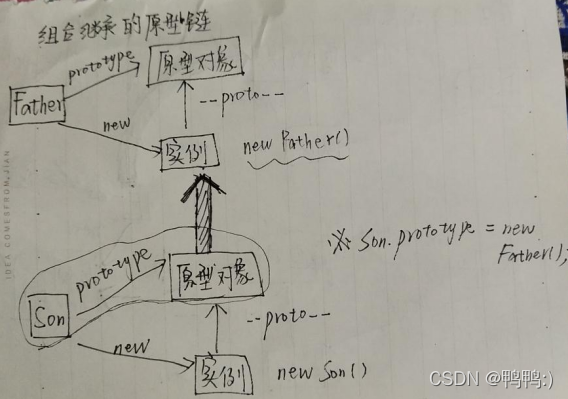 组合继承的原型链
prototype
原型对象
Father
--proto--
new
实例
new Father()
prototype
原型对象
※ Son.prototype = new
Father();
Son
--proto--
new
实例
new Son()
IDEA COMESFROM.JIAN
CSDN @鸭鸭:)